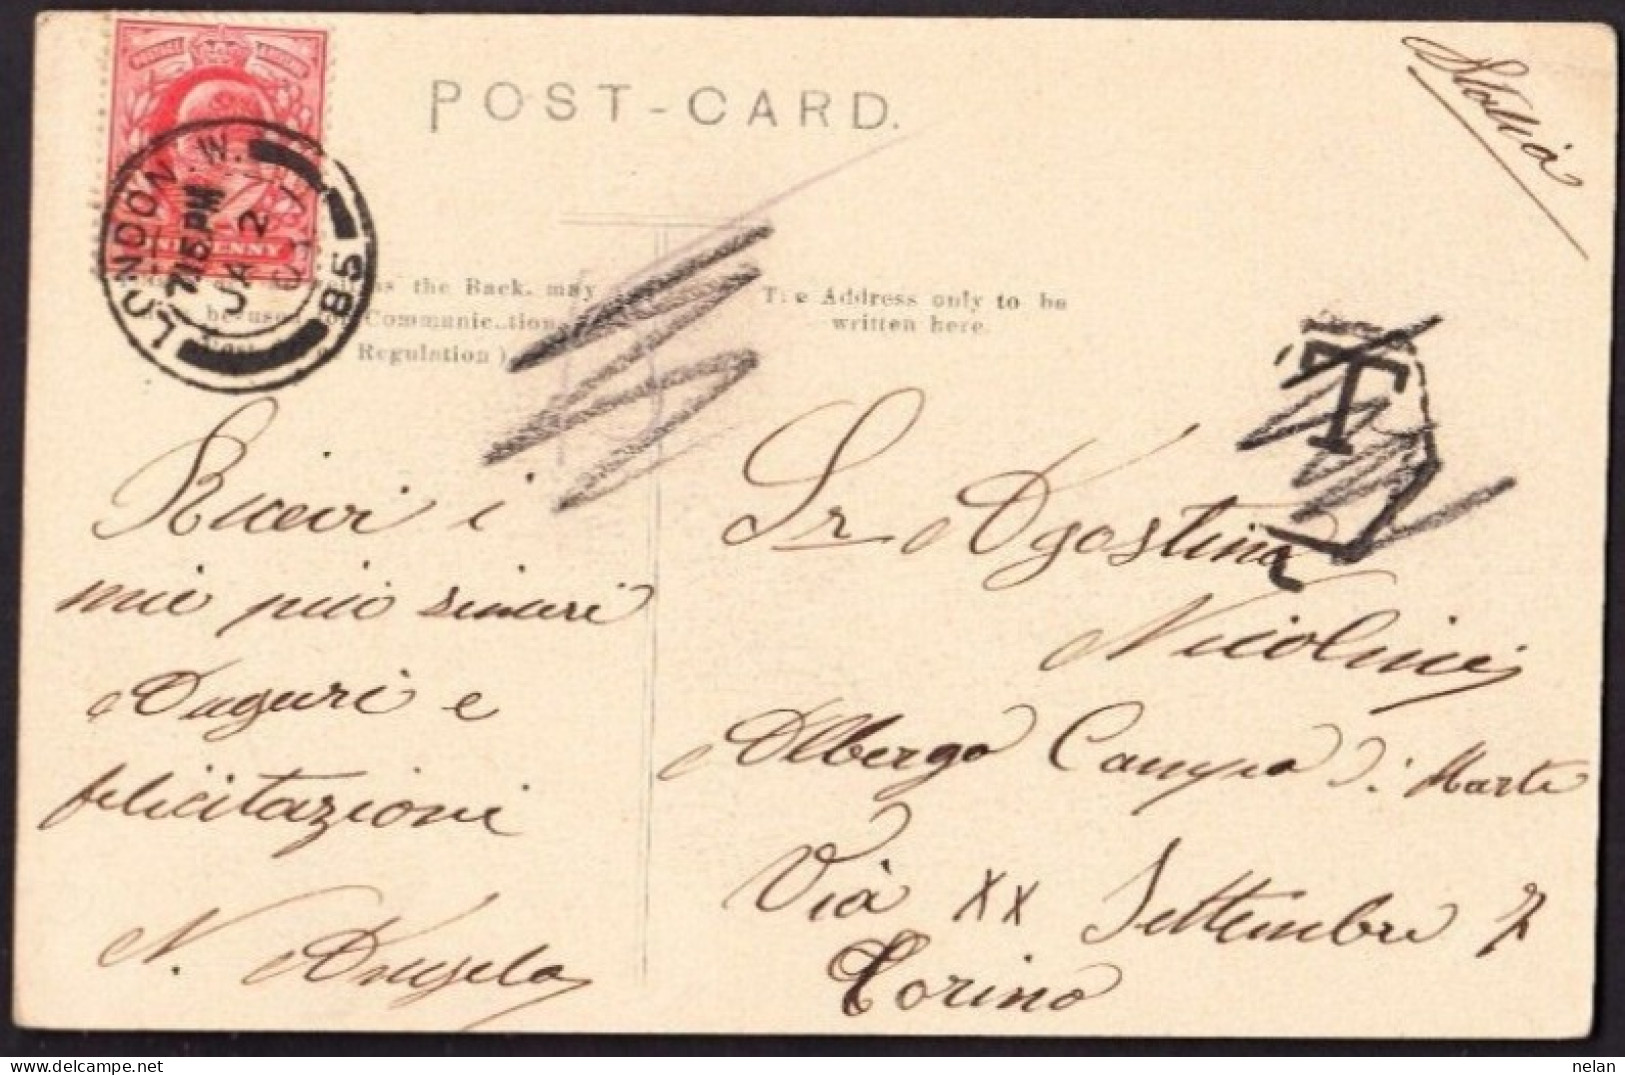 POSTAGE REVENUE
ONE PENNY
LONDON. W.
7.15 PM
JA 2
85
POST-CARD.
Italia
the Back. may
for Communication
Regulation)
The Address only to be
written here.
T
Ricevi i
miei più sinceri
Auguri e
felicitazioni
N. Angela
Sr Agostina
Nicolini
Albergo Campo di Marte
Via XX Settembre 7
Torino
nelan